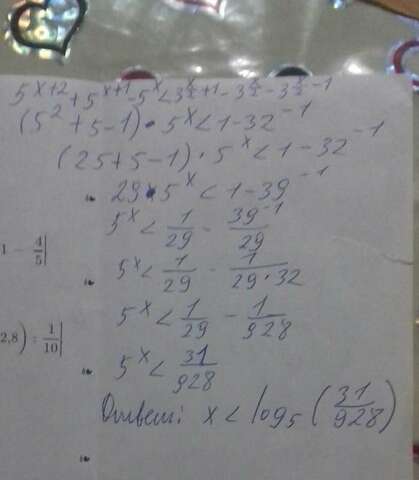 5^{x+2} + 5^{x+1} - 5^x < 3^{\frac{x}{2}+1} - 3^{\frac{x}{2}} - 3^{\frac{x}{2}-1}
(5^2 + 5 - 1) · 5^x < 1 - 32^{-1}
(25 + 5 - 1) · 5^x < 1 - 32^{-1}
29 · 5^x < 1 - 39^{-1}
5^x < \frac{1}{29} - \frac{39^{-1}}{29}
1 - \frac{4}{5}|
5^x < \frac{1}{29} - \frac{1}{29·32}
5^x < \frac{1}{29} - \frac{1}{928}
2,8) : \frac{1}{10}|
5^x < \frac{31}{928}
Ответ: x < log_5 (\frac{31}{928})